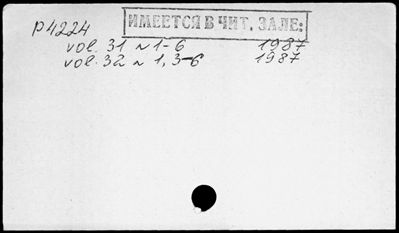 P4224
ИМЕЕТСЯ В ЧИТ. ЗАЛЕ:
vol. 31 N 1-6 1987
vol. 32 N 1, 3-6 1987